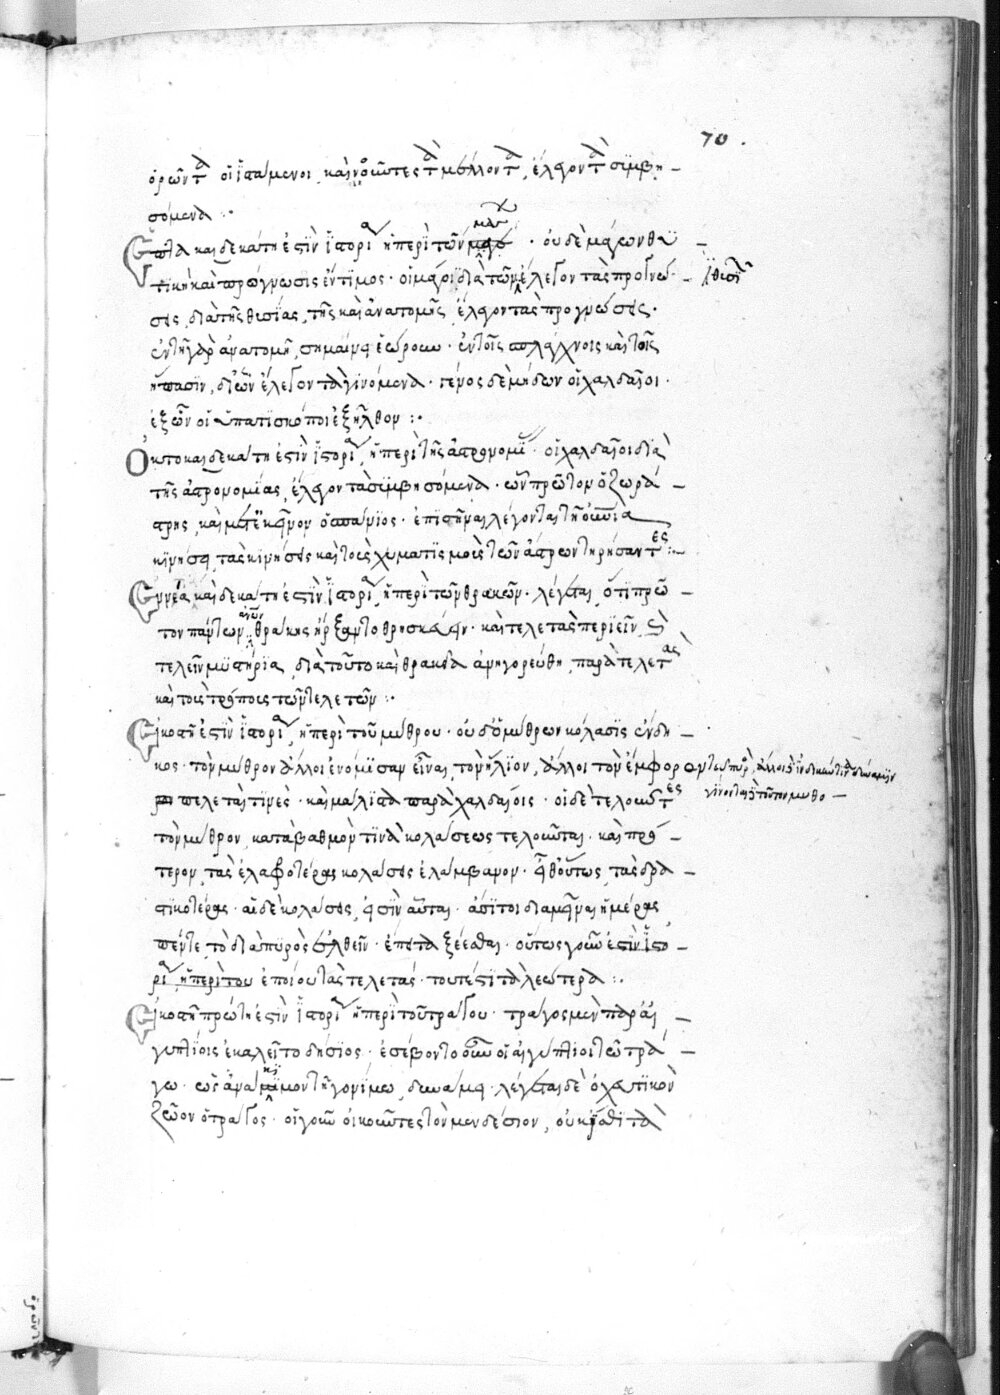 70.
ὁρῶντα οἱ ἱστάμενοι, καὶ νοοῦντες τὰ μέλλοντα, ἔλεγον τὰ συμβη-
σόμενα :
Ἑπτακαιδεκάτη ἐστὶν ἱστορία ἡ περὶ τῶν μάγων · οὐδὲ μάγων θυ-
τικὴ καὶ πρόγνωσις ἔντιμος · οἱ μάγοι διὰ τῶν ἔλεγον τὰς προγνώ-
σεις, διὰ τῆς θυσίας, τῆς καὶ ἀνατομῆς, ἔλεγον τὰς προγνώσεις ·
ἐν τῇ γὰρ ἀνατομῇ, σημαίνει ἑώρουν · ἐν τοῖς σπλάχνοις καὶ τοῖς
ἥπασιν, δι' ὧν ἔλεγον τὰ γινόμενα · γένος δὲ μήδων οἱ χαλδαῖοι ·
ἐξ ὧν οἱ ὑπατισκόποι ἐξῆλθον :
Ὀκτοκαιδεκάτη ἐστὶν ἱστορία, ἡ περὶ τῆς ἀστρονομίας · οἱ χαλδαῖοι διὰ
τῆς ἀστρονομίας, ἔλεγον τὰ συμβησόμενα · ὧν πρῶτον ὁ ζωρά-
στρης, καὶ μετ' ἐκεῖνον ὁ
κινήσει, τὰς κινήσεις καὶ τοὺς χυματισμοὺς τῶν ἄστρων τηρήσαντες :
Ἐννέακαιδεκάτη ἐστὶν ἱστορία, ἡ περὶ τῶν θρακῶν · λέγεται, ὅτι πρῶ-
τον πάντων θράκης ἤρξαντο θρησκεύειν · καὶ τελετὰς περιεῖν, καὶ
τελεῖν μυστήρια, διὰ τοῦτο καὶ θρακία ἀνηγορεύθη, παρὰ τελετὰς
καὶ τοὺς τρόποις τῶν τελετῶν :
Εἰκοστὴ ἐστὶν ἱστορία, ἡ περὶ τοῦ μίθρου · οὐδ' ὁ μίθρων κόλασις ἔνδι-
κος · τὸν μίθρον ἄλλοι ἐνόμισαν εἶναι, τὸν ἥλιον, ἄλλοι τὸν ἔμφορον
τελεταὶ τινές · καὶ μάλιστα παρὰ χαλδαίοις · οἱ δὲ τελοῦντες
τὸν μίθρον, κατὰ βαθμόν τινα κολάσεως τελοῦνται · καὶ πρό-
τερον, τὰς ἐλαφοτέρας κολάσεις ἐλάμβανον · εἶθ' οὕτως, τὰς δρα-
στικοτέρας · αἱ δὲ κολάσεις, εἰσὶν αὗται · ἀσιτοι διαμεῖναι ἡμέρας
πέντε, τὸ διὰ πυρὸς ἐλθεῖν · ἔπειτα ξέεσθαι · οὕτως γοῦν ἐστὶν ἱστο-
ρία, ἡ περὶ του ἐποίου τὰς τελετάς · τουτέστι τὰ λεώτερα :
Εἰκοστὴ πρώτη ἐστὶν ἱστορία ἡ περὶ τοῦ τράγου · τράγος μὲν παρ' αἰ-
γυπτίοις ἐκαλεῖτο δήσιος · ἐσέβοντο οὖν οἱ αἰγύπτιοι τῶ τρά-
γω · δυνάμει · λέγεται δὲ ὀχευτικὸν
ζῶον ὁ τράγος · οἱ γοῦν οἰκοῦντες τὸν μενδέσιον, οὐκ ἤσθιτα